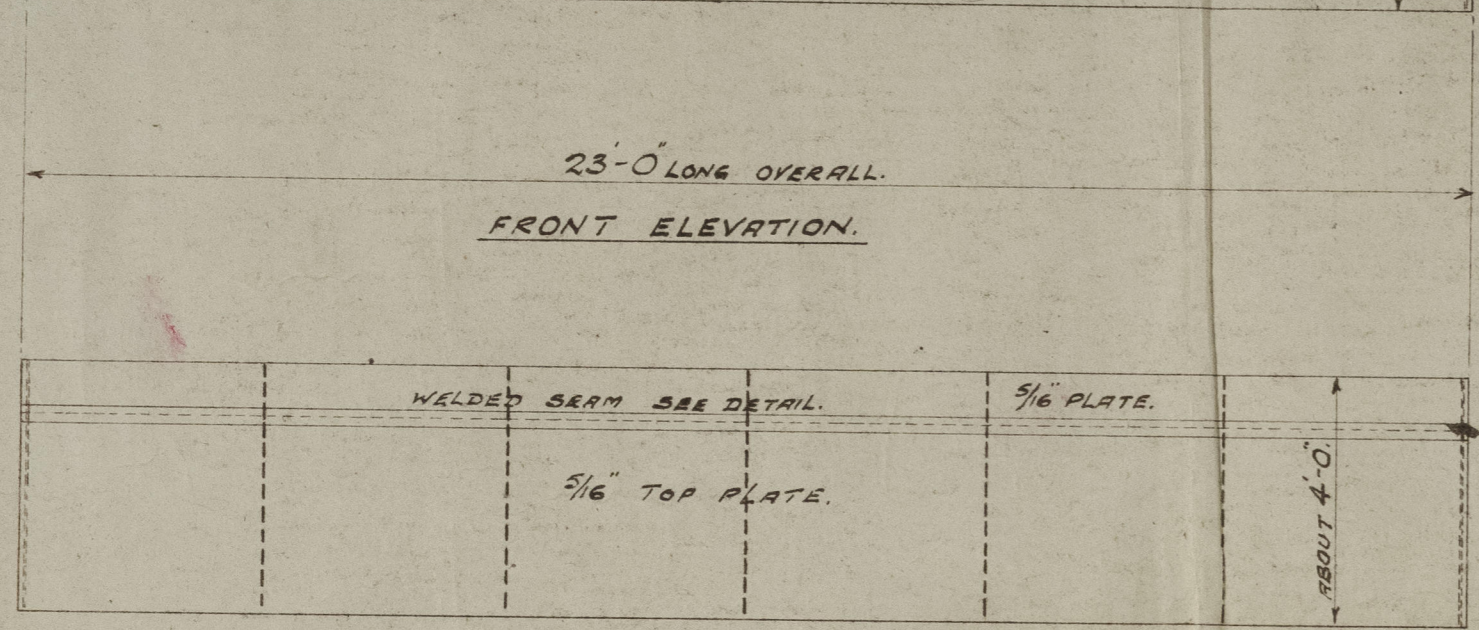 23'-0" LONG OVERALL.
FRONT ELEVATION.
WELDED SEAM SEE DETAIL.
5/16" PLATE.
5/16" TOP PLATE.
ABOUT 4'-0".